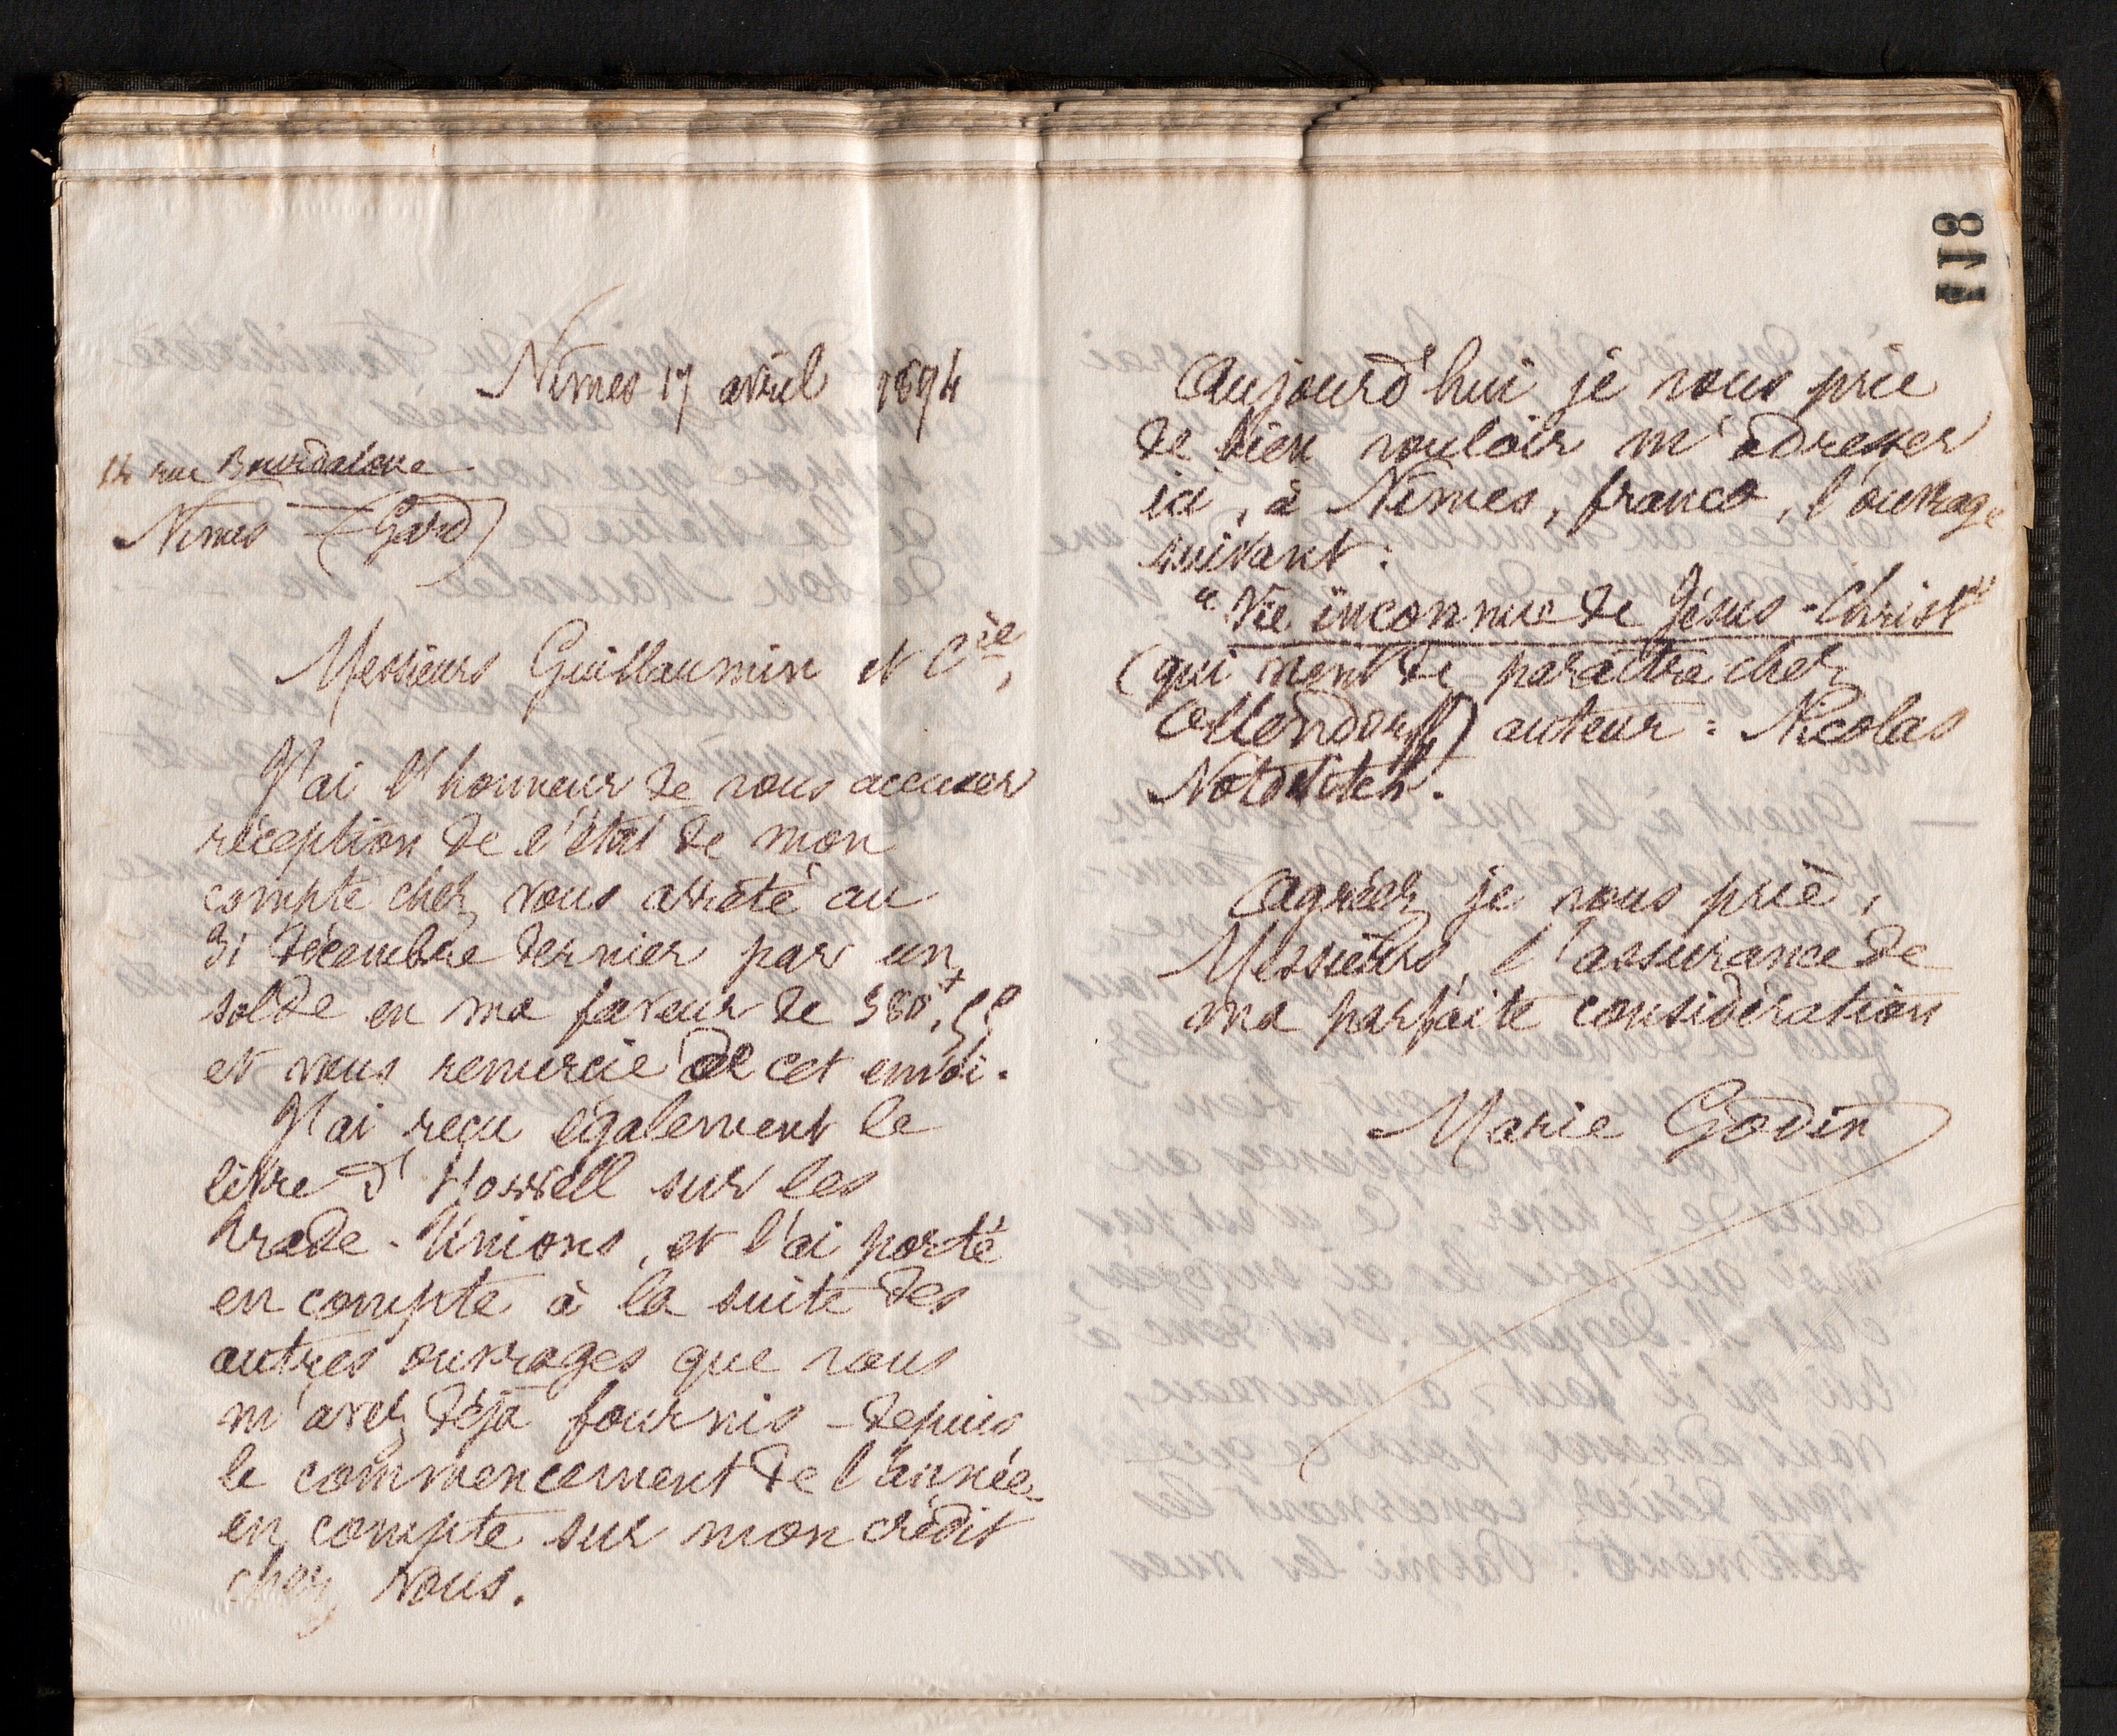 Nîmes 17 avril 1894
14 rue Bourdaloue
Nîmes (Gard)
Messieurs Guillaumin et Cie,
J'ai l'honneur de vous accuser
réception de l'état de mon
compte chez vous arrêté au
31 décembre dernier par un
solde en ma faveur de 380f,55
et vous remercie de cet envoi.
J'ai reçu également le
livre d'Howell sur les
Trade-Unions, et l'ai porté
en compte à la suite des
autres ouvrages que vous
m'avez déjà fournis - depuis
le commencement de l'année -
en compte sur mon crédit
chez vous.
118
Aujourd'hui je vous prie
de bien vouloir m'adresser
ici, à Nîmes, franco, l'ouvrage
suivant :
"Vie inconnue de Jésus-Christ"
(qui vient de paraître chez
Ollendorff) auteur : Nicolas
Notovitch.
Agréez je vous prie,
Messieurs, l'assurance de
ma parfaite considération
Marie Godin